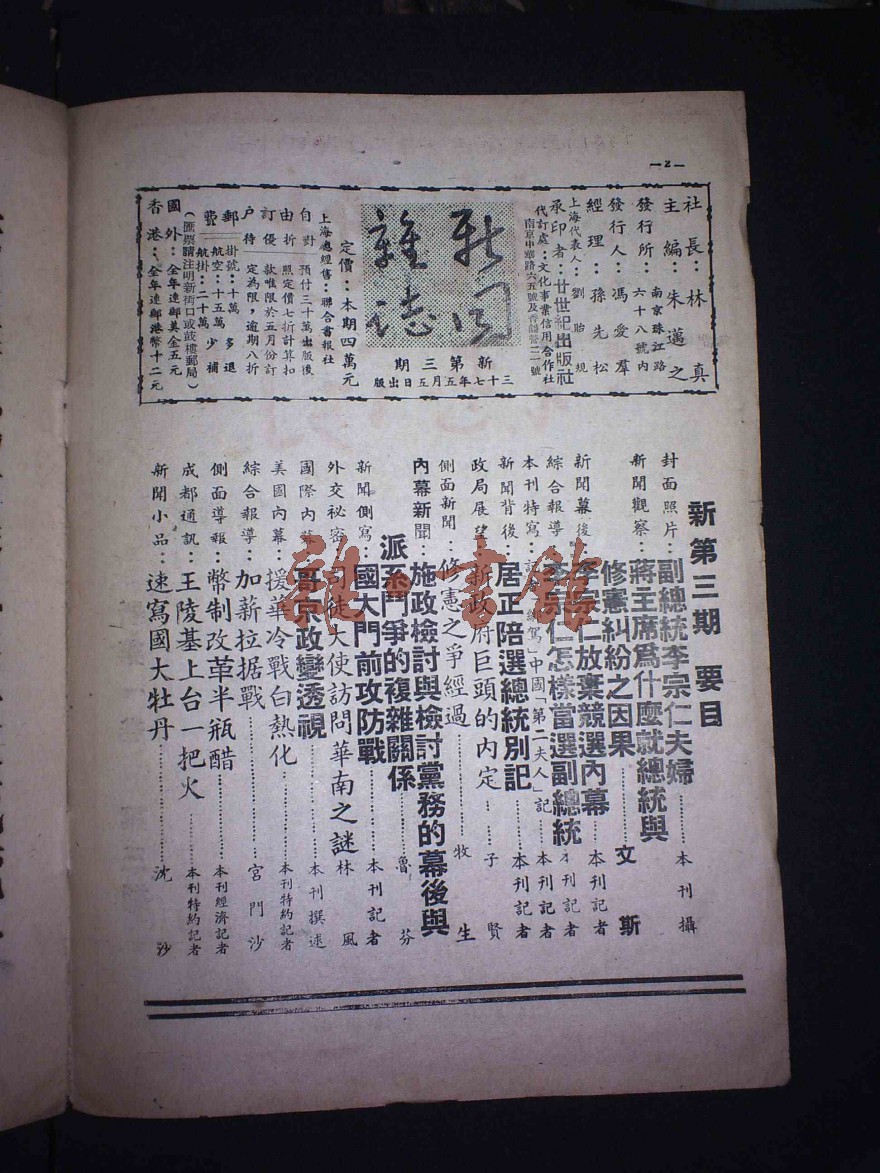 —2—
社長：林真
主編：朱邁之
發行所：南京珠江路六十八號內
發行人：馮愛羣
經理：孫先松
上海代表人：劉貽規
承印者：廿世紀出版社
代訂處：文化事業信用合作社
新聞雜誌
新第三期
三十七年五月五日出版
定價：本期四萬元
上海總經售：聯合書報社
自對由折訂優戶待
預付三十萬出版後
照定價七折計算扣
款唯限於五月份訂
定為限，逾期八折
郵費
掛號：十萬
航空：十五萬
航掛：二十萬
多退少補
（匯票請注明新街口或鼓樓郵局）
國外：全年連郵美金五元
香港：全年連郵港幣十二元
新第三期 要目
封面照片：副總統李宗仁夫婦……本刊攝
新聞觀察：蔣主席爲什麼就總統與
修憲糾紛之因果……文斯
新聞幕後：李宗仁放棄競選內幕……本刊記者
綜合報導：李宗仁怎樣當選副總統 本刊記者
本刊特寫：中國「第二夫人」記……本刊記者
新聞背後：居正陪選總統別記……本刊記者
政局展望：新政府巨頭的內定……子賢
側面新聞：修憲之爭經過……牧生
內幕新聞：施政檢討與檢討黨務的幕後與
派系鬥爭的複雜關係……魯芬
新聞側寫：國大門前攻防戰……本刊記者
外交祕密：司徒大使訪問華南之謎 林風
國際內幕：哥京政變透視……本刊撰述
美國內幕：援華冷戰白熱化……本刊特約記者
綜合報導：加薪拉据戰……宮門沙
側面導報：幣制改革半瓶醋……本刊經濟記者
成都通訊：王陵基上台一把火……本刊特約記者
新聞小品：速寫國大牡丹……沈沙